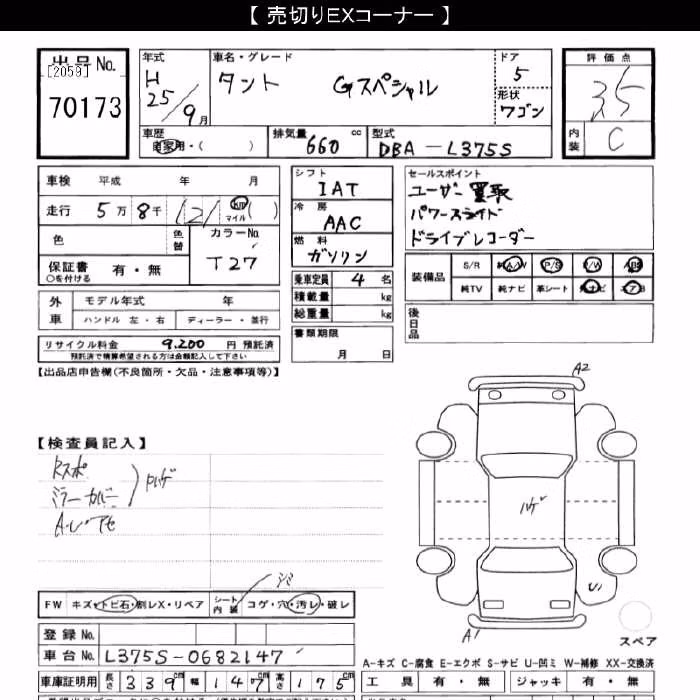 【 売切りEXコーナー 】
出品 No.
[2059]
70173
年式
H
25/9月
車名・グレード
タント Gスペシャル
ドア
5
形状
ワゴン
評価点
3.5
内装
C
車歴
自家用・( )
排気量
660 cc
型式
DBA-L375S
車検 平成 年 月
走行 5万 8千 121 km マイル ( )
色
色替
カラーNo.
T27
保証書 有・無
○を付ける
シフト
IAT
冷房
AAC
燃料
ガソリン
乗車定員 4 名
積載量 kg
総重量 kg
書類期限
月 日
セールスポイント
ユーザー買取
パワースライド
ドライブレコーダー
装備品
S/R 純A/W P/S P/W ABS
純TV 純ナビ 革シート 純ナビ エアB
後日品
外車
モデル年式 年
ハンドル 左・右 ディーラー・並行
リサイクル料金 9.200 円 預託済
預託済で精算希望される方は金額記入して下さい
【出品店申告欄(不良箇所・欠品・注意事項等)】
【検査員記入】
Rスポ
ミラーカバー
ハゲ
A2
ハゲ
U1
A1
スペア
シミ
FW キズ・トビ石・割レX・リペア
シート内装 コゲ・穴・汚レ・破レ
登録 No.
車台 No. L375S-0682147
A-キズ C-腐食 E-エクボ S-サビ U-凹ミ W-補修 XX-交換済
車庫証明用 長さ 339cm 幅 147cm 高さ 175cm
工具 有・無 ジャッキ 有・無